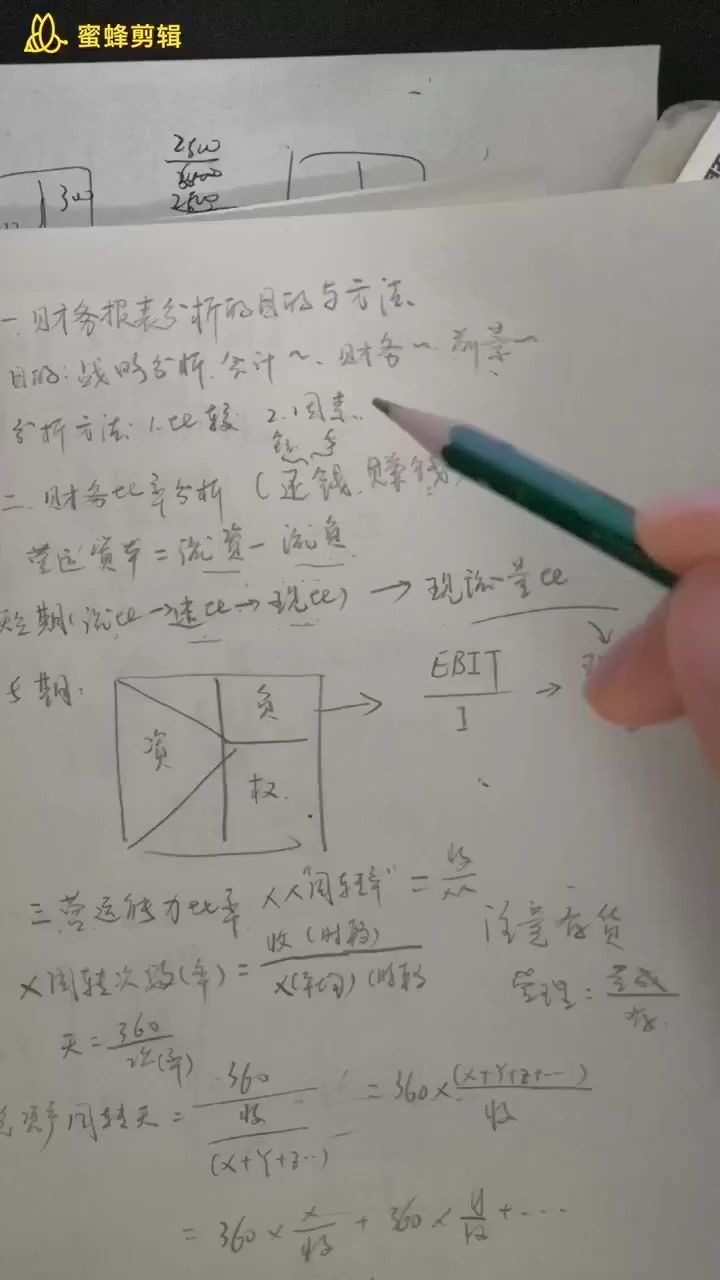 蜜蜂剪辑
300
2500
2500
一.财务报表分析的目的与方法.
目的:战略分析.会计~.财务~.前景~
分析方法:1.比较 2.因素..
二.财务比率分析(还钱.赚钱
营运资本=流资-流负
短期(流比→速比→现比)→现流量比
长期:
资 负 权
EBIT
I
三.营运能力比率 XX"周转率"=收/XX
X周转次数(年)=收(时段)/X(平均)(时段
注意存货
管理:营成/存.
天=360/次(年)
总资产周转天=360/收/(X+Y+Z…)=360×(X+Y+Z+…)/收
=360×X/收+360×Y/收+…